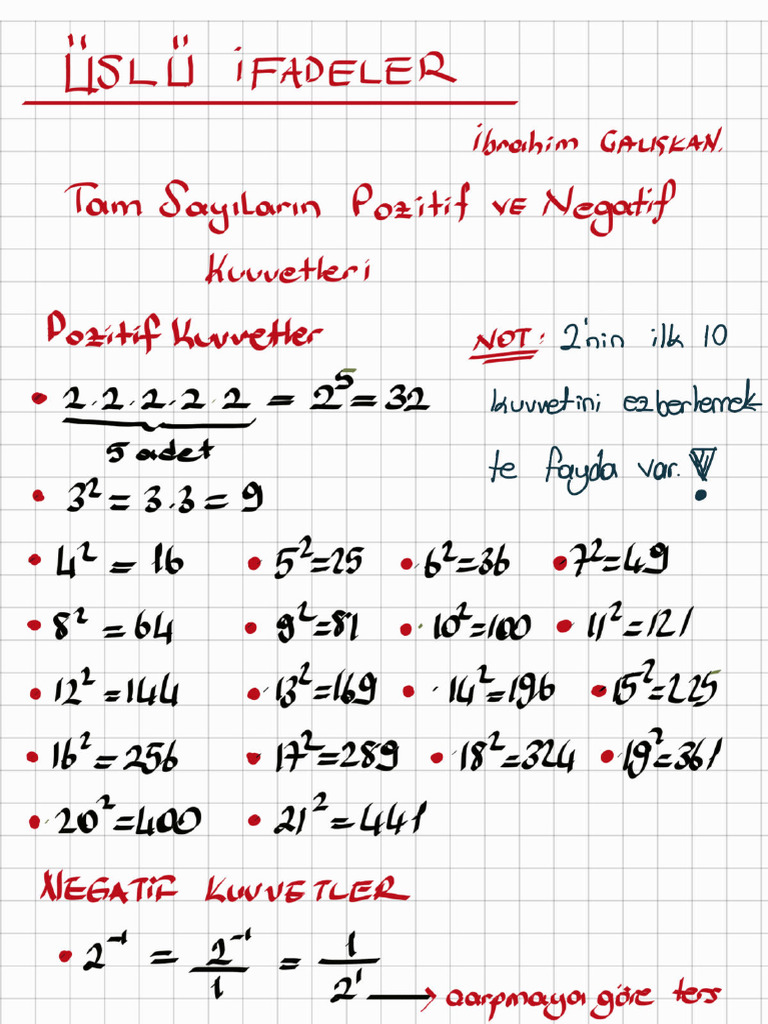 ÜSLÜ İFADELER
İbrahim ÇALIŞKAN.
Tam Sayıların Pozitif VE Negatif
Kuvvetleri
Pozitif Kuvvetler
NOT: 2'nin ilk 10
kuvvetini ezberlemek
te fayda var.!
• 2.2.2.2.2 = 2⁵ = 32
5 adet
• 3² = 3.3 = 9
• 4² = 16 • 5²=25 • 6²=36 • 7²=49
• 8² = 64 • 9²=81 • 10²=100 • 11²=121
• 12²=144 • 13²=169 • 14²=196 • 15²=225
• 16²=256 • 17²=289 • 18²=324 • 19²=361
• 20²=400 • 21²=441
NEGATİF KUVVETLER
• 2⁻¹ = 2⁻¹/1 = 1/2¹ → çarpmaya göre ters